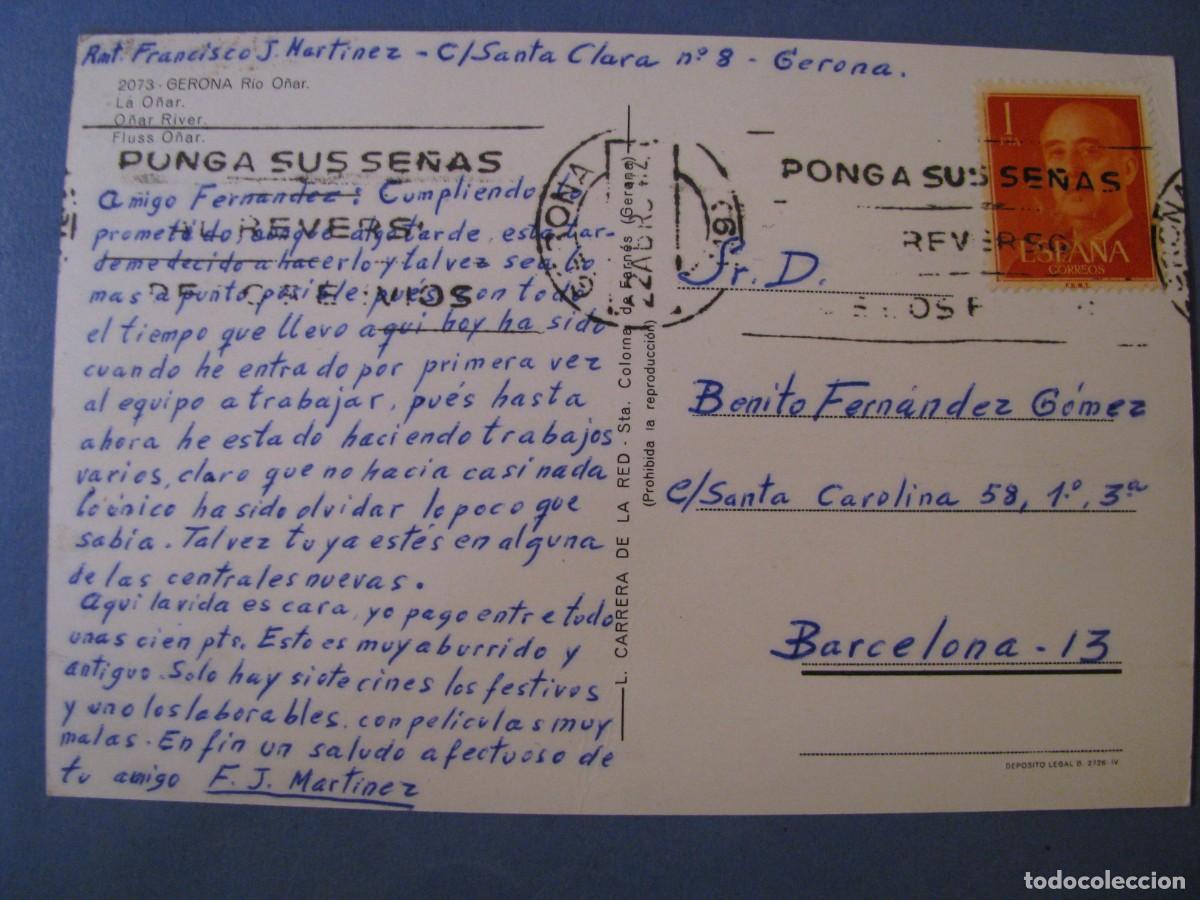 Rmt. Francisco J. Martinez - C/Santa Clara nº 8 - Gerona.
2073 - GERONA Río Oñar.
Lá Oñar.
Oñar River.
Fluss Oñar.
PONGA SUS SEÑAS
AL REVERS
DE
Amigo Fernandez: Cumpliendo lo
prometido, aunque algo tarde, esta tar-
de me decido a hacerlo y tal vez sea lo
mas a punto posible pués con todo
el tiempo que llevo aqui hoy ha sido
cuando he entrado por primera vez
al equipo a trabajar, pués hasta
ahora he estado haciendo trabajos
varios, claro que no hacia casi nada
lo único ha sido olvidar lo poco que
sabia. Tal vez tu ya estés en alguna
de las centrales nuevas.
Aqui la vida es cara, yo pago entre todo
unas cien pts. Esto es muy aburrido y
antiguo. Solo hay siete cines los festivos
y uno los laborables, con peliculas muy
malas. En fin un saludo afectuoso de
tu amigo F. J. Martinez
L. CARRERA DE LA RED - Sta. Coloma de Farnés (Gerona)
(Prohibida la reproducción)
22 ABR
PONGA SUS SEÑAS
REVERSO
1
ESPAÑA
CORREOS
F.N.M.T.
GERONA
Sr. D.
Benito Fernández Gómez
C/Santa Carolina 58, 1º, 3ª
Barcelona - 13
DEPOSITO LEGAL B. 2126-IV
todocoleccion